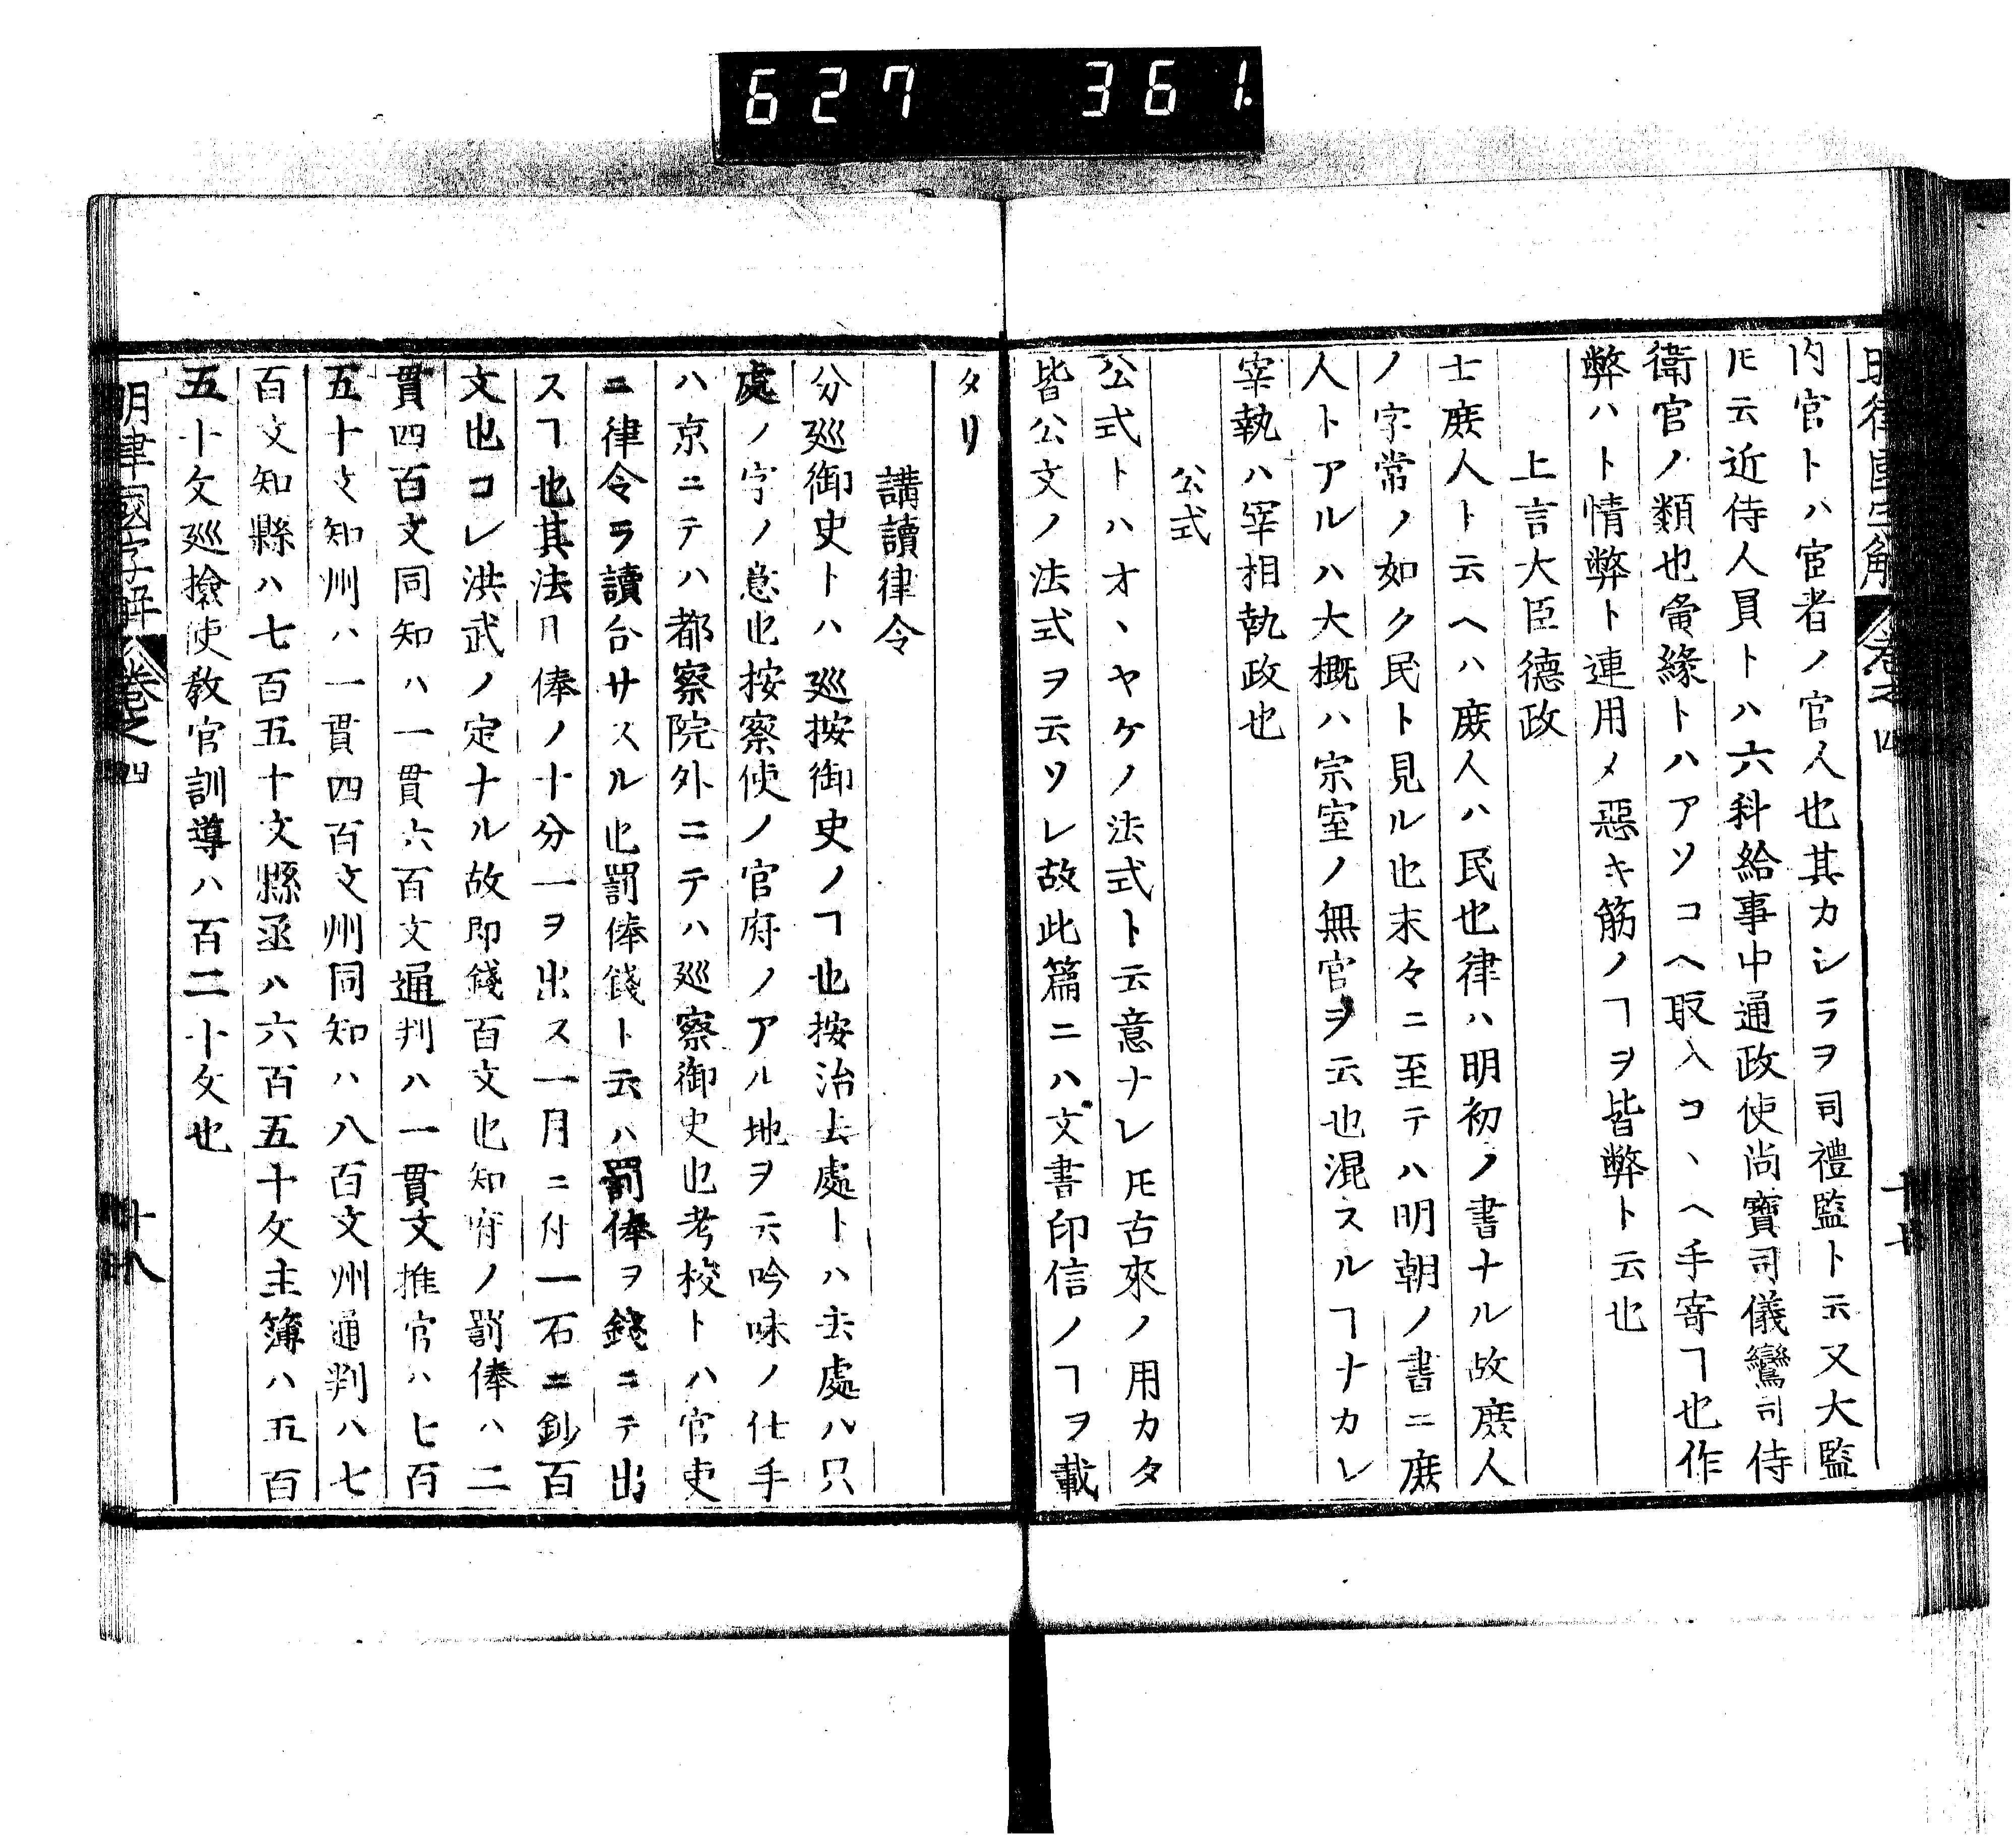 627 361
明律國字解 卷之四 十七
內官トハ宦者ノ官人也其カシラヲ司禮監ト云又大監
𪜈云近侍人員トハ六科給事中通政使尚寶司儀鸞司侍
衛官ノ類也夤緣トハアソコヘ取入コヽヘ手寄ヿ也作
弊ハト情弊ト連用メ惡キ筋ノヿヲ皆弊ト云也
上言大臣德政
士庻人ト云ヘハ庻人ハ民也律ハ明初ノ書ナル故庻人
ノ字常ノ如ク民ト見ル也末々ニ至テハ明朝ノ書ニ庻
人トアルハ大概ハ宗室ノ無官ヲ云也混スルヿナカレ
宰執ハ宰相執政也
公式
公式トハオヽヤケノ法式ト云意ナレ𪜈古來ノ用カタ
皆公文ノ法式ヲ云ソレ故此篇ニハ文書印信ノヿヲ載
タリ
講讀律令
分廵御史トハ廵按御史ノヿ也按治去處トハ去處ハ只
處ノ字ノ意也按察使ノ官府ノアル地ヲ云吟味ノ仕手
ハ京ニテハ都察院外ニテハ廵察御史也考校トハ官吏
ニ律令ヲ讀台サスル也罰俸錢ト云ハ罰俸ヲ錢ニテ出
スヿ也其法月俸ノ十分一ヲ出ス一月ニ付一石ニ鈔百
文也コレ洪武ノ定ナル故即錢百文也知府ノ罰俸ハ二
貫四百文同知ハ一貫六百文通判ハ一貫文推官ハ七百
五十文知州ハ一貫四百文州同知ハ八百文州通判ハ七
百文知縣ハ七百五十文縣丞ハ六百五十文主簿ハ五百
五十文廵撿使敎官訓導ハ百二十文也
明律國字解 卷之四 十八